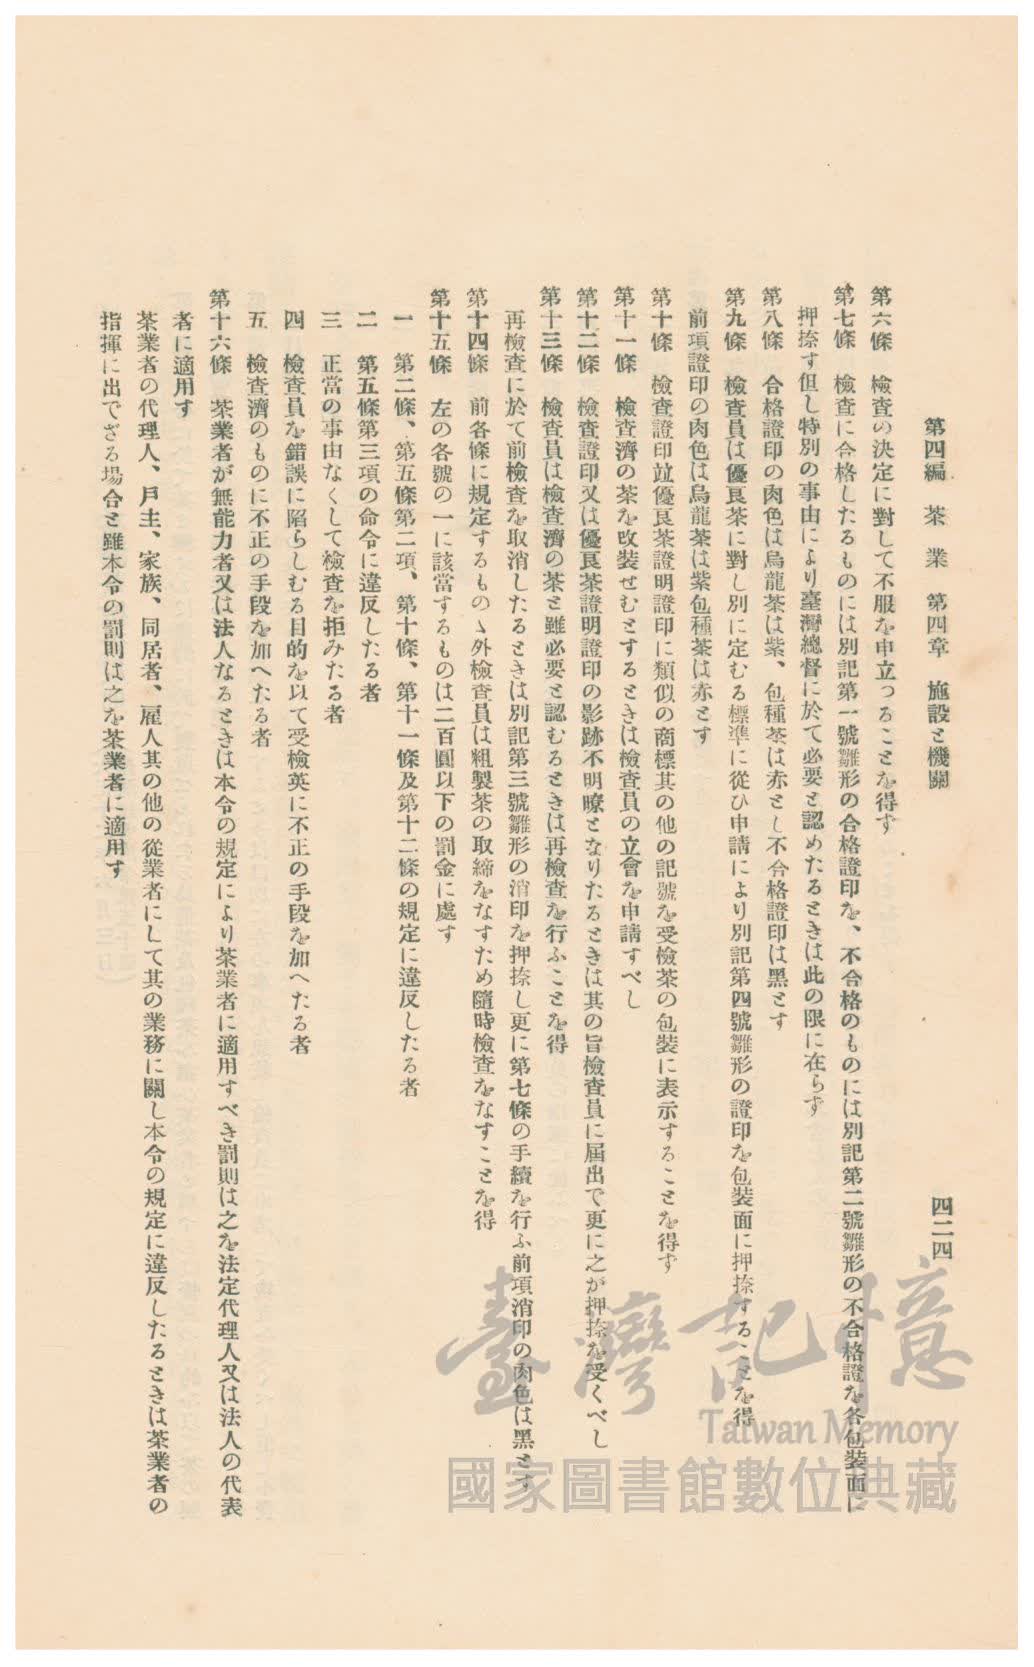 第四編 茶業 第四章 施設と機關
四二四
第六條 檢査の決定に對して不服を申立つることを得ず
第七條 檢査に合格したるものには別記第一號雛形の合格證印を、不合格のものには別記第二號雛形の不合格證を各包裝面に
押捺す但し特別の事由により臺灣總督に於て必要と認めたるときは此の限に在らず
第八條 合格證印の肉色は烏龍茶は紫、包種茶は赤とし不合格證印は黑とす
第九條 檢査員は優良茶に對し別に定むる標準に從ひ申請により別記第四號雛形の證印を包裝面に押捺することを得
前項證印の肉色は烏龍茶は紫包種茶は赤とす
第十條 檢査證印竝優良茶證明證印に類似の商標其の他の記號を受檢茶の包裝に表示することを得ず
第十一條 檢査濟の茶を改裝せむとするときは檢査員の立會を申請すべし
第十二條 檢査證印又は優良茶證明證印の影跡不明瞭となりたるときは其の旨檢査員に屆出で更に之が押捺を受くべし
第十三條 檢査員は檢査濟の茶と雖必要と認むるときは再檢査を行ふことを得
再檢査に於て前檢査を取消したるときは別記第三號雛形の消印を押捺し更に第七條の手續を行ふ前項消印の肉色は黑とす
第十四條 前各條に規定するものゝ外檢査員は粗製茶の取締をなすため隨時檢査をなすことを得
第十五條 左の各號の一に該當するものは二百圓以下の罰金に處す
一 第二條、第五條第二項、第十條、第十一條及第十二條の規定に違反したる者
二 第五條第三項の命令に違反したる者
三 正當の事由なくして檢査を拒みたる者
四 檢査員を錯誤に陷らしむる目的を以て受檢英に不正の手段を加へたる者
五 檢査濟のものに不正の手段を加へたる者
第十六條 茶業者が無能力者又は法人なるときは本令の規定により茶業者に適用すべき罰則は之を法定代理人又は法人の代表
者に適用す
茶業者の代理人、戶主、家族、同居者、雇人其の他の從業者にして其の業務に關し本令の規定に違反したるときは茶業者の
指揮に出でざる場合と雖本令の罰則は之を茶業者に適用す
臺灣記憶
Taiwan Memory
國家圖書館數位典藏